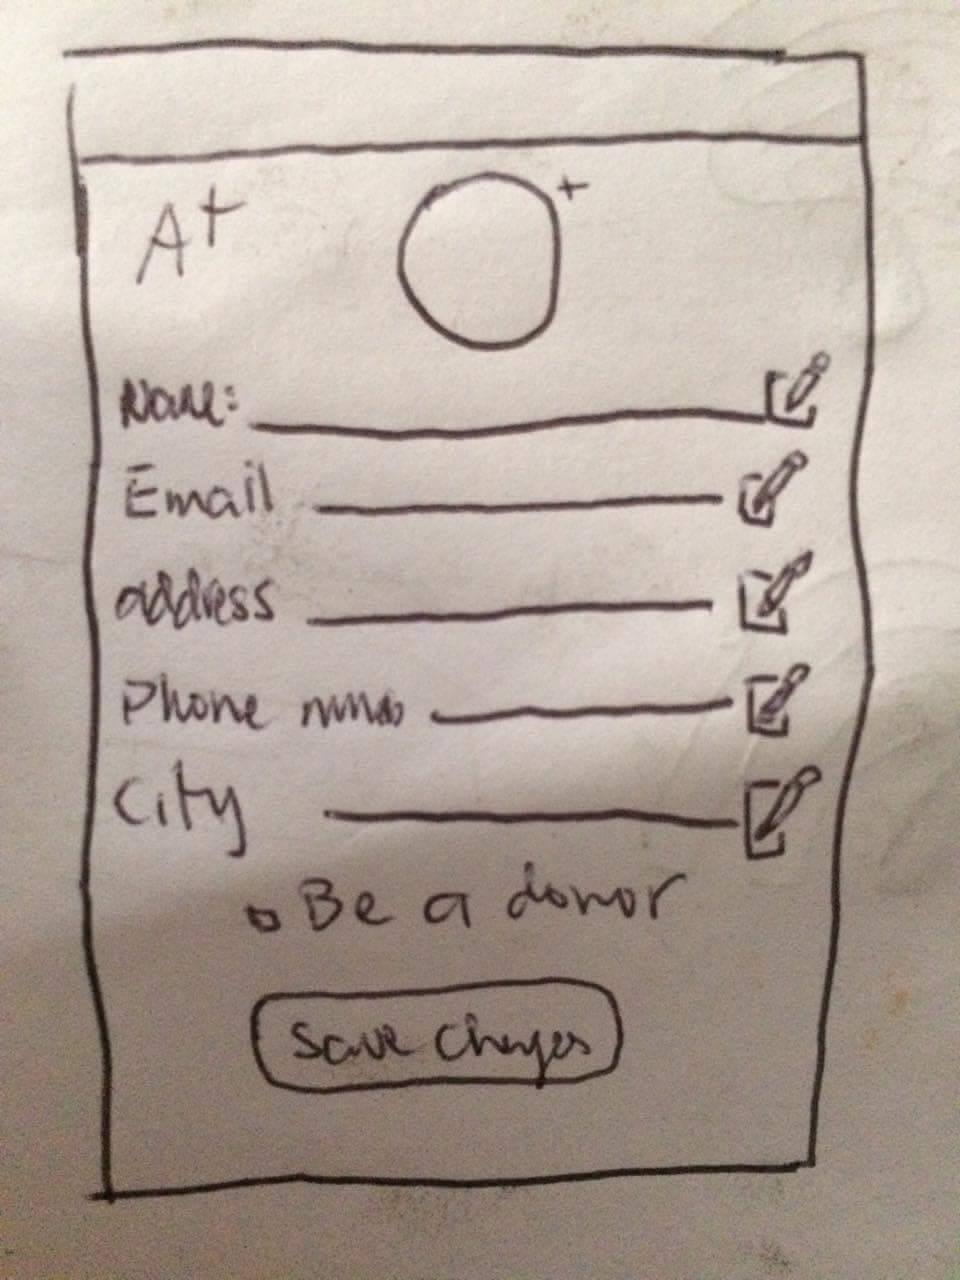 A+
+
Name:
Email
address
Phone
City
Be a donor
Save Changes